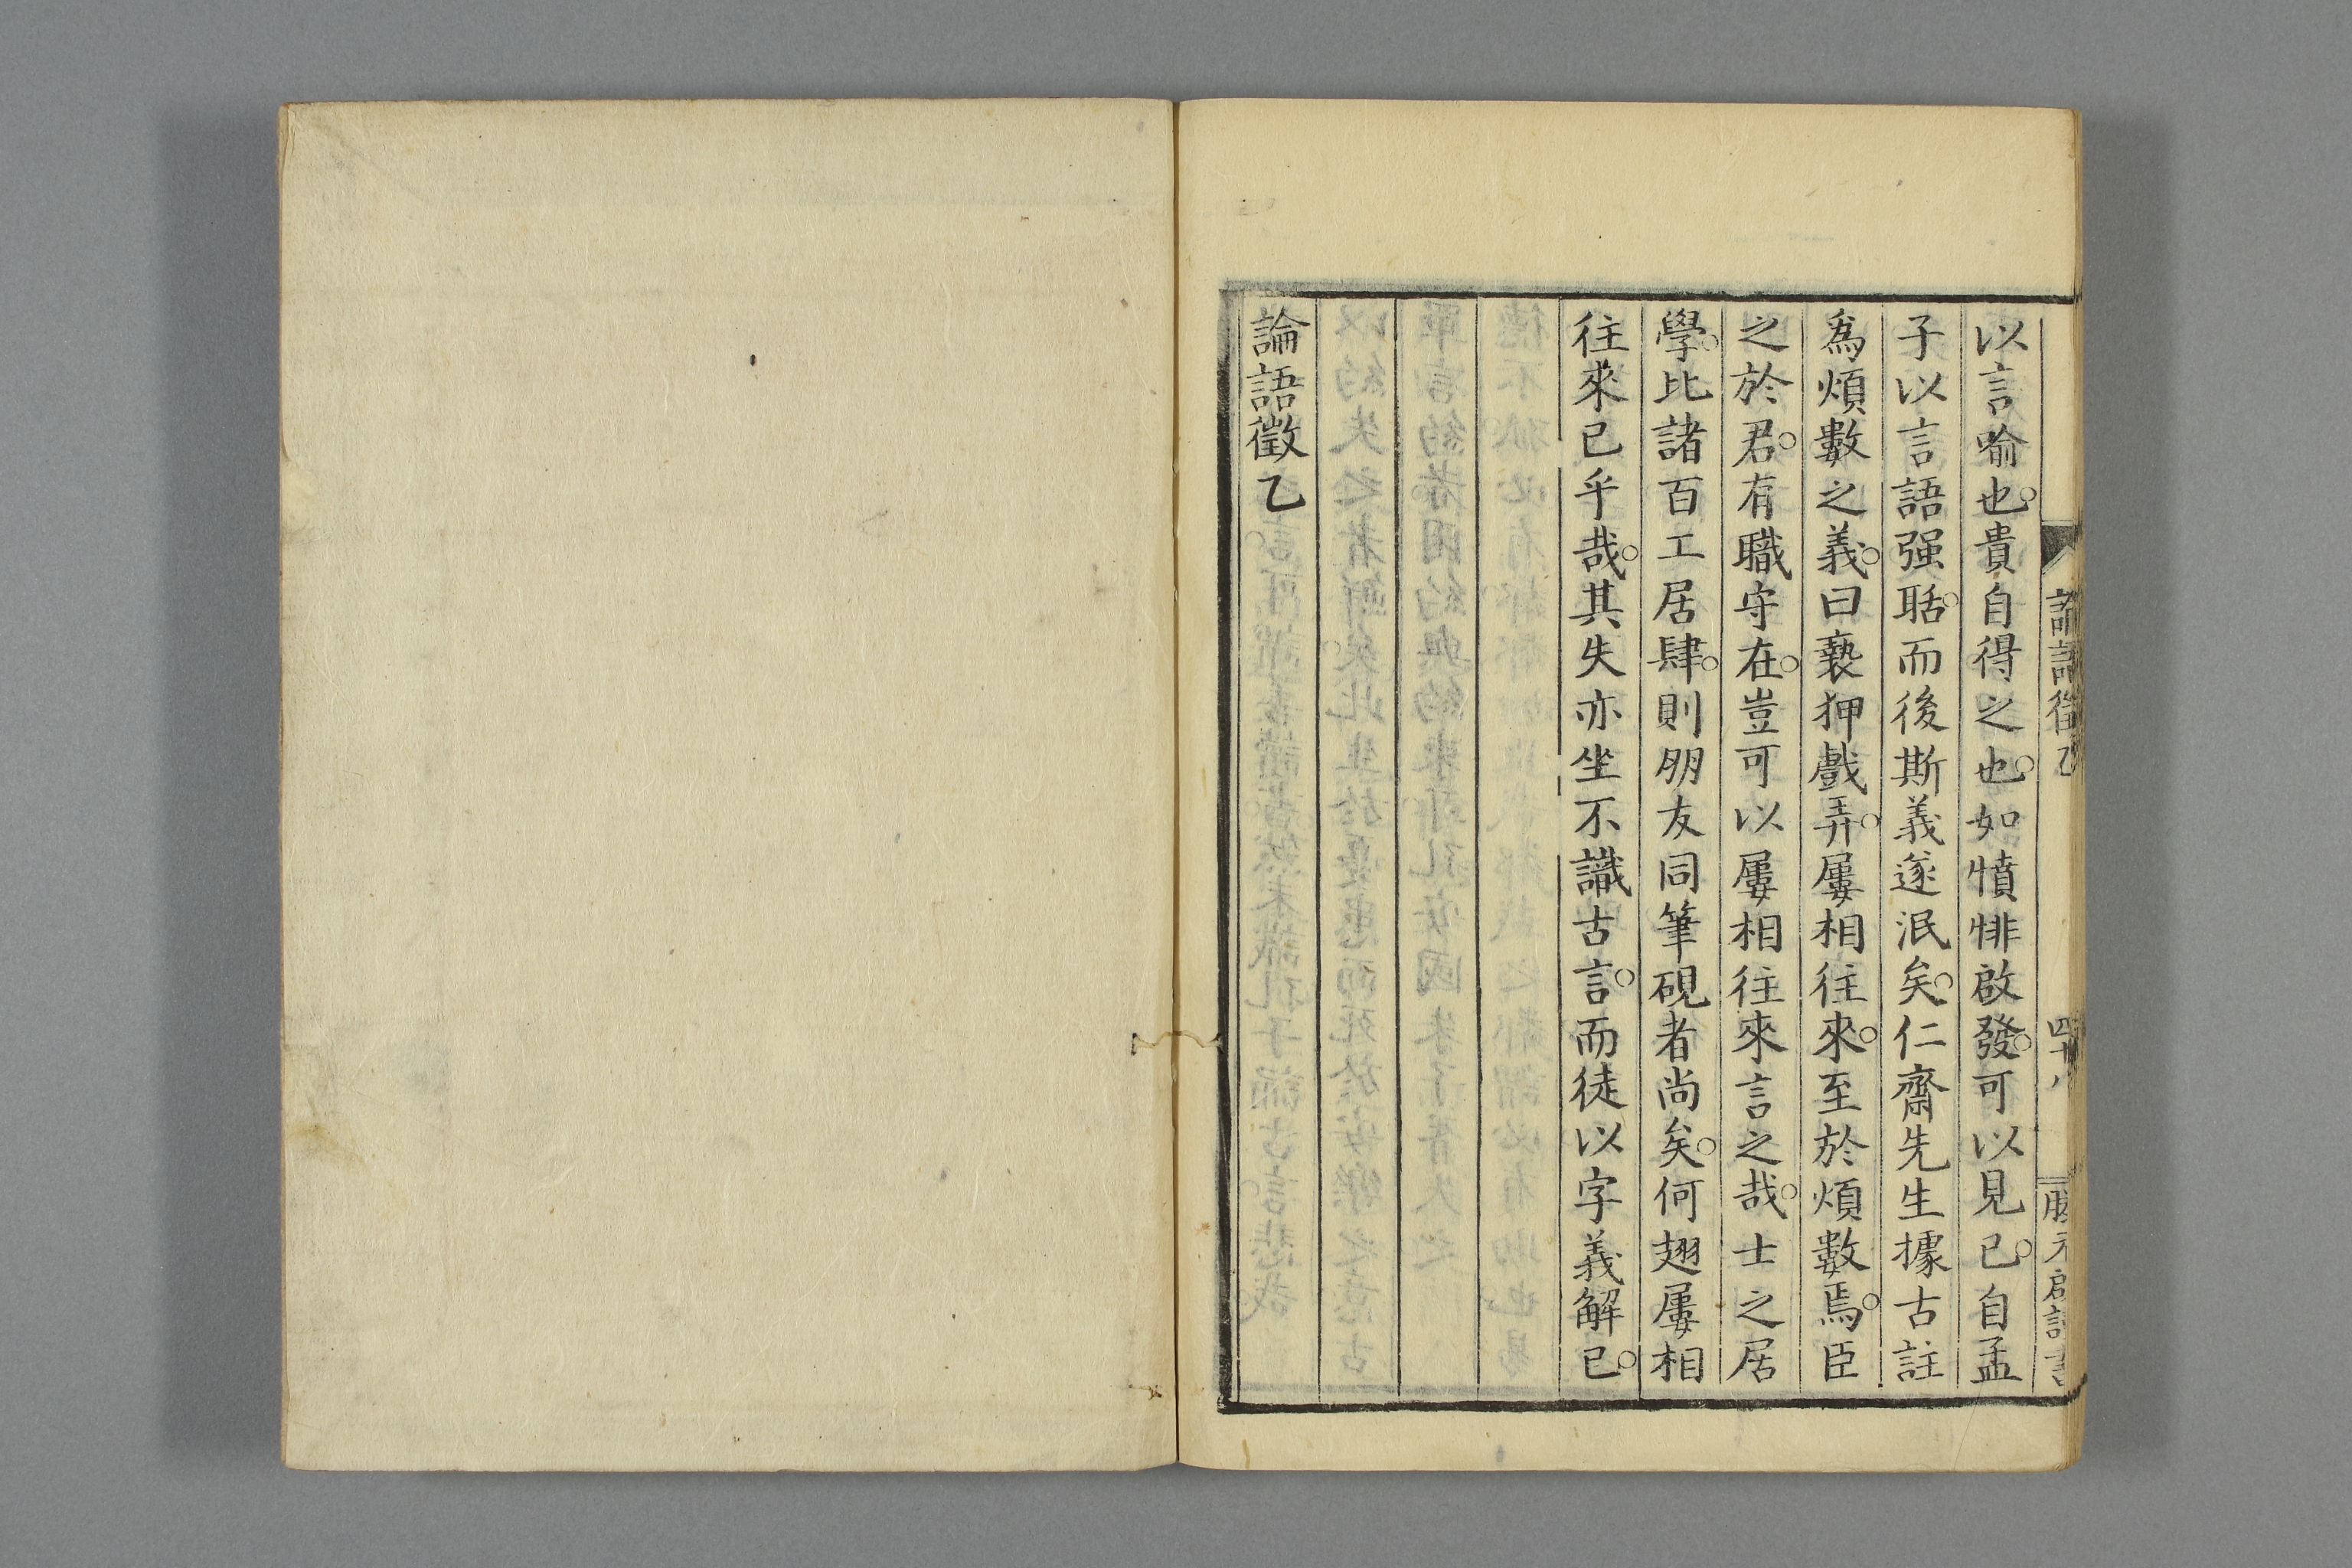 以言喻也。貴自得之也。如憤悱啟發。可以見已。自孟
子以言語强聒。而後斯義遂泯矣。仁齋先生據古註
爲煩數之義。曰褻狎戲弄。屢相往來。至於煩數焉。臣
之於君。有職守在。豈可以屢相往來言之哉。士之居
學。比諸百工居肆。則朋友同筆硯者尚矣。何翅屢相
往來已乎哉。其失亦坐不識古言。而徒以字義解已。
論語徵乙
論語徵乙 四十八